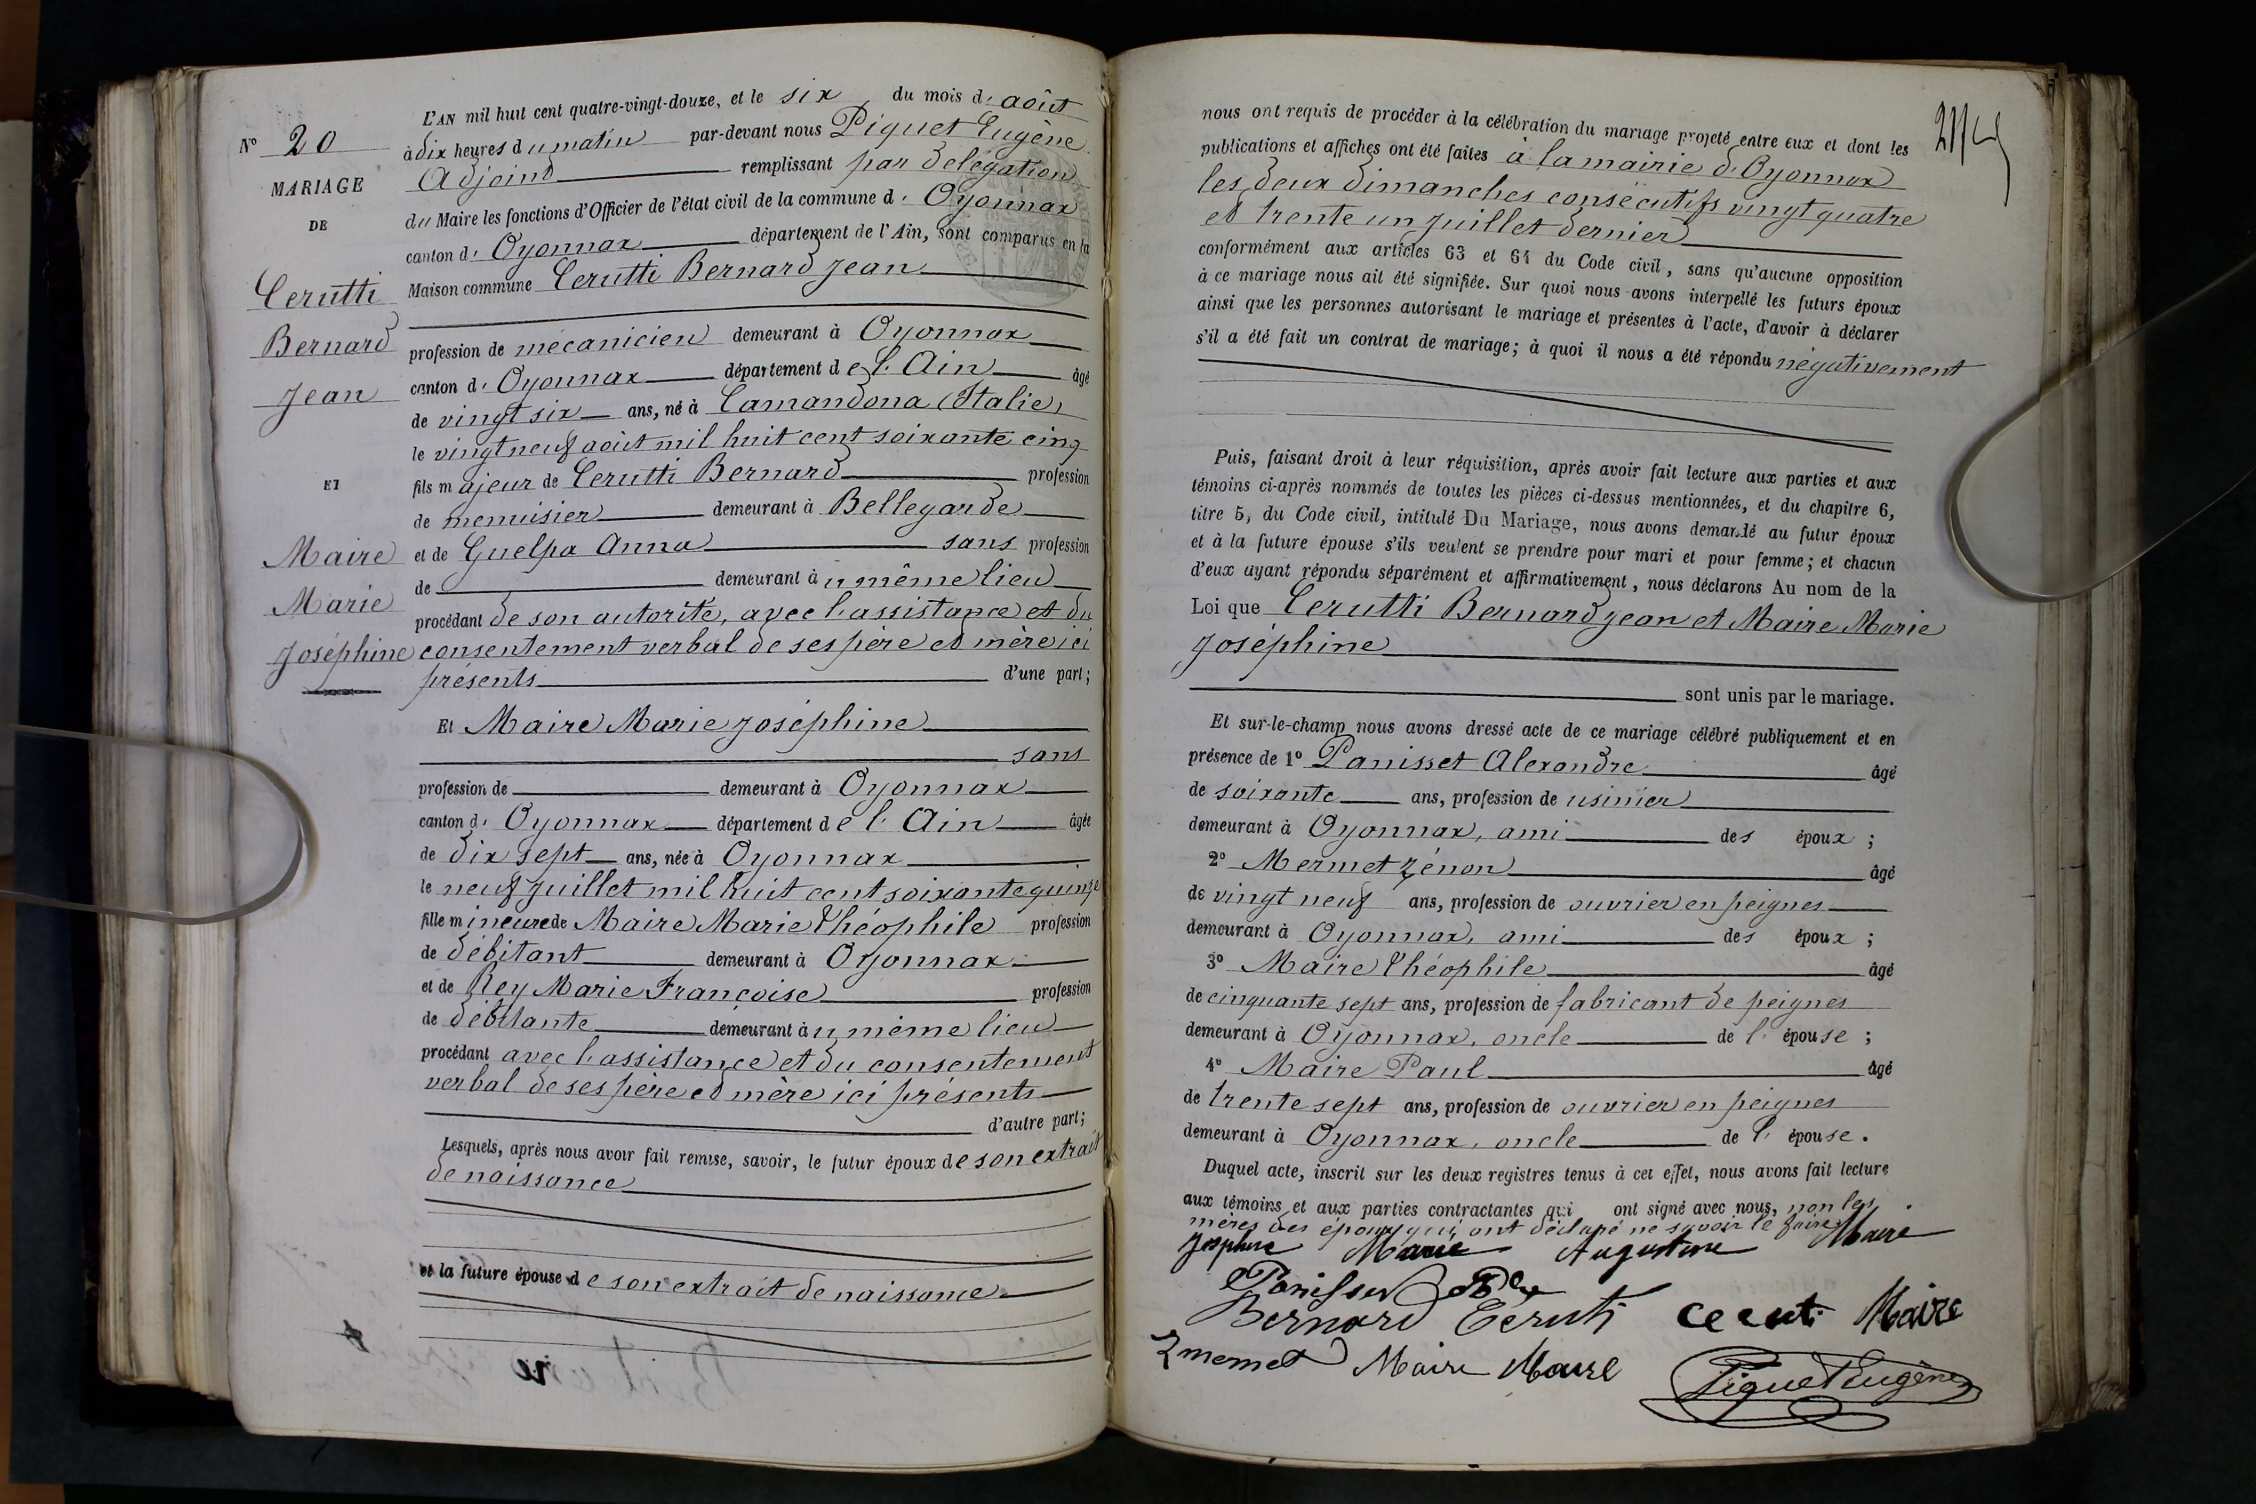 L'AN mil huit cent quatre-vingt-douze, et le six du mois d'août
à dix heures du matin par-devant nous Piquet Eugène
Adjoint remplissant par délégation
du Maire les fonctions d'Officier de l'état civil de la commune d'Oyonnax
canton d'Oyonnax département de l'Ain, sont comparus en la
Maison commune Cerutti Bernard Jean
profession de mécanicien demeurant à Oyonnax
canton d'Oyonnax département de l'Ain âgé
de vingt six ans, né à Camandona (Italie)
le vingt neuf août mil huit cent soixante cinq
fils majeur de Cerutti Bernard profession
de menuisier demeurant à Bellegarde
et de Guelpa Anna sans profession
de demeurant à u même lieu
procédant de son autorité, avec l'assistance et du
consentement verbal de ses père et mère ici
présents d'une part;
Et Maire Marie Joséphine
sans
profession de demeurant à Oyonnax
canton d'Oyonnax département de l'Ain âgée
de dix sept ans, née à Oyonnax
le neuf juillet mil huit cent soixante quinze
fille mineure de Maire Marie Théophile profession
de débitant demeurant à Oyonnax
et de Rey Marie Françoise profession
de débitante demeurant à u même lieu
procédant avec l'assistance et du consentement
verbal de ses père et mère ici présents
d'autre part;
Lesquels, après nous avoir fait remise, savoir, le futur époux de son extrait
de naissance
et la future épouse de son extrait de naissance
No 20
MARIAGE
DE
Cerutti
Bernard
Jean
ET
Maire
Marie
Joséphine
nous ont requis de procéder à la célébration du mariage projeté entre eux et dont les
publications et affiches ont été faites à la mairie d'Oyonnax
les deux dimanches consécutifs vingt quatre
et trente un juillet dernier
conformément aux articles 63 et 64 du Code civil, sans qu'aucune opposition
à ce mariage nous ait été signifiée. Sur quoi nous avons interpellé les futurs époux
ainsi que les personnes autorisant le mariage et présentes à l'acte, d'avoir à déclarer
s'il a été fait un contrat de mariage; à quoi il nous a été répondu négativement
Puis, faisant droit à leur réquisition, après avoir fait lecture aux parties et aux
témoins ci-après nommés de toutes les pièces ci-dessus mentionnées, et du chapitre 6,
titre 5, du Code civil, intitulé Du Mariage, nous avons demandé au futur époux
et à la future épouse s'ils veulent se prendre pour mari et pour femme; et chacun
d'eux ayant répondu séparément et affirmativement, nous déclarons Au nom de la
Loi que Cerutti Bernard Jean et Maire Marie
Joséphine
sont unis par le mariage.
Et sur-le-champ nous avons dressé acte de ce mariage célébré publiquement et en
présence de 1o Panisset Alexandre âgé
de soixante ans, profession de usinier
demeurant à Oyonnax, ami des époux;
2o Mermet Zénon âgé
de vingt neuf ans, profession de ouvrier en peignes
demeurant à Oyonnax, ami des époux;
3o Maire Théophile âgé
de cinquante sept ans, profession de fabricant de peignes
demeurant à Oyonnax, oncle de l'épouse;
4o Maire Paul âgé
de trente sept ans, profession de ouvrier en peignes
demeurant à Oyonnax, oncle de l'épouse.
Duquel acte, inscrit sur les deux registres tenus à cet effet, nous avons fait lecture
aux témoins et aux parties contractantes qui ont signé avec nous, non les
mères des époux qui ont déclaré ne savoir le faire
Josephine Marie Augustine Maire
Panisset
Bernard Ceruti Maire
Maire Maire
Piquet Eugène